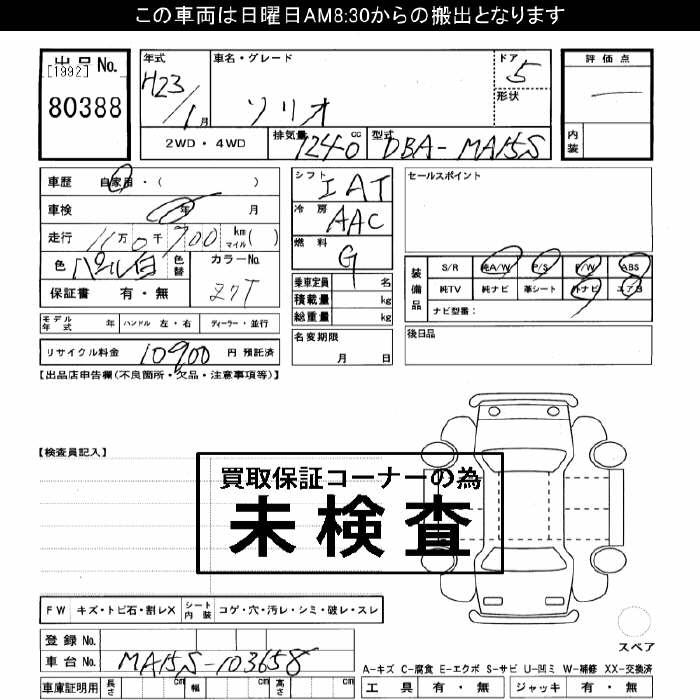 この車両は日曜日AM8:30からの搬出となります
出品No.
[1992]
80388
年式
H23/1月
車名・グレード
ソリオ
ドア
5
形状
評価点
内装
2WD・4WD
排気量 1240 cc
型式 DBA-MA15S
車歴 自家用・( )
車検 年 月
走行 11万0千700 km マイル( )
色 パール白
色替
カラーNo.
ZQT
保証書 有・無
モデル年式 年 ハンドル 左・右 ディーラー・並行
リサイクル料金 10900 円 預託済
シフト IAT
冷房 AAC
燃料 G
乗車定員 名
積載量 kg
総重量 kg
名変期限
月 日
セールスポイント
装備品
S/R 純A/W P/S P/W ABS
純TV 純ナビ 革シート 外ナビ エアB
ナビ型番:
後日品
【出品店申告欄(不良箇所・欠品・注意事項等)】
【検査員記入】
買取保証コーナーの為
未検査
FW キズ・トビ石・割レX シート内装 コゲ・穴・汚レ・シミ・破レ・スレ
登録No.
車台No. MA15S-103658
車庫証明用 長さ cm 幅 cm 高さ cm
スペア
A-キズ C-腐食 E-エクボ S-サビ U-凹ミ W-補修 XX-交換済
工具 有・無 ジャッキ 有・無